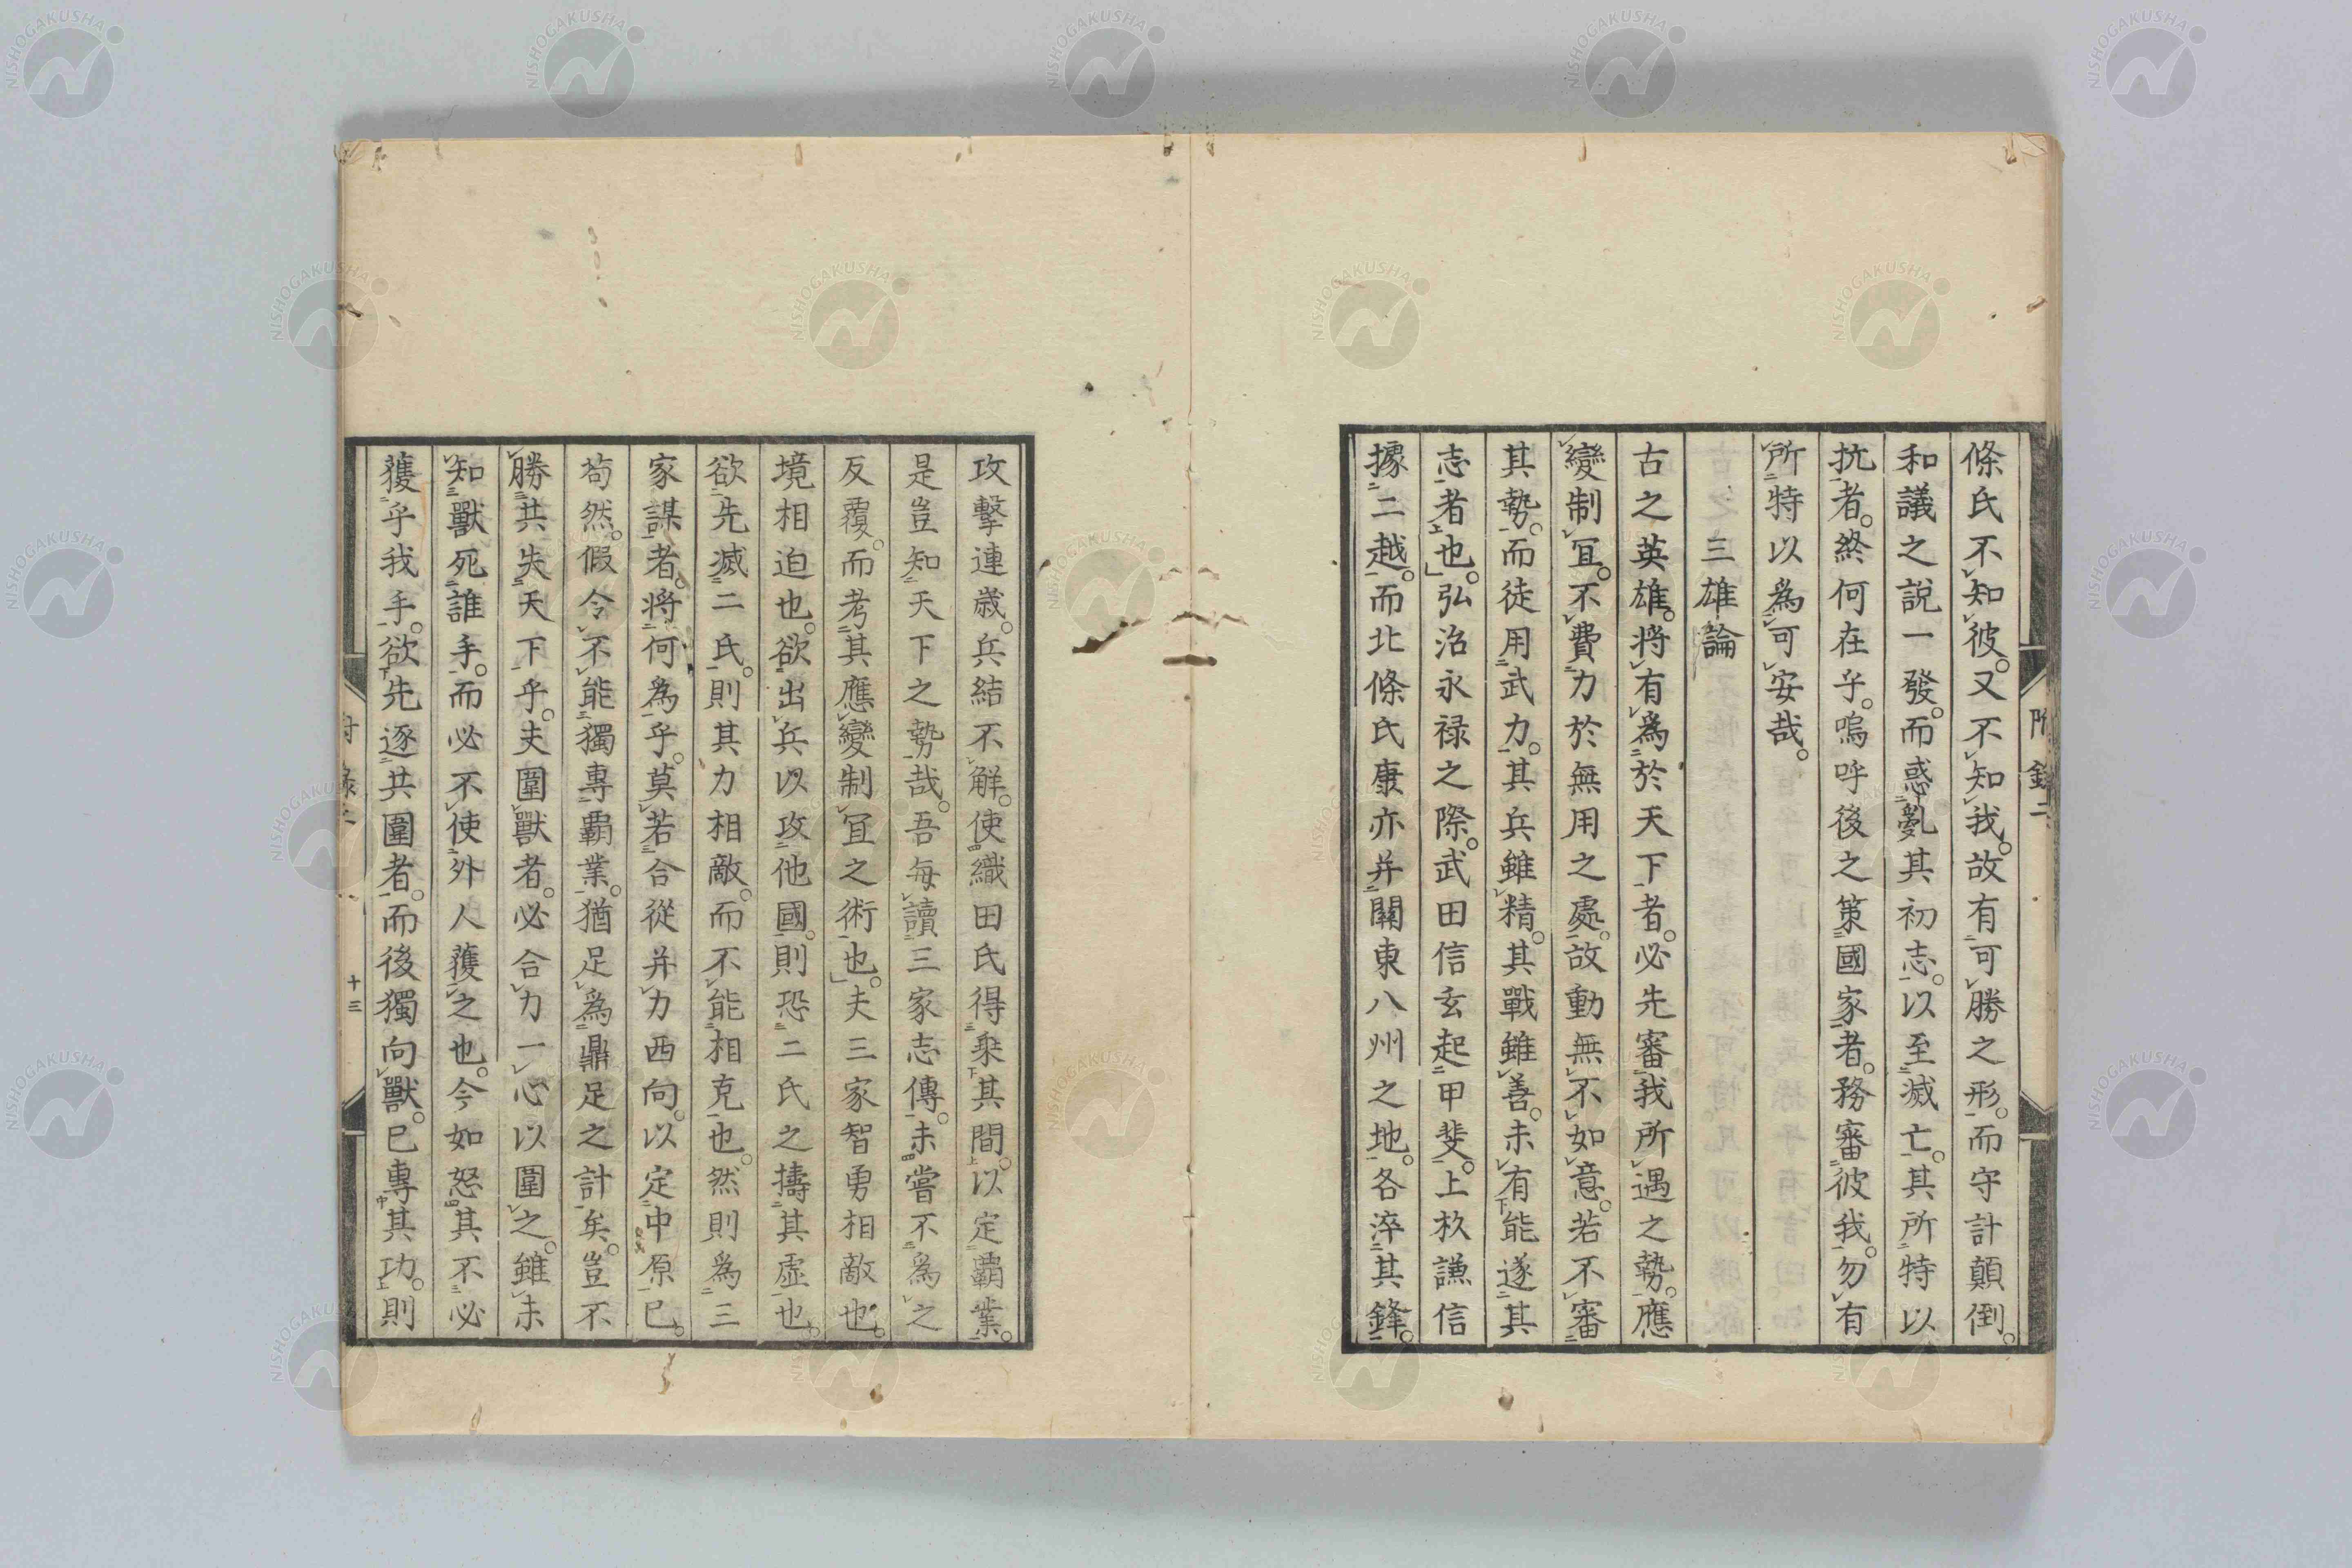 條氏不知彼。又不知我。故有可勝之形。而守計顛倒。
和議之說一發。而惑亂其初志。以至滅亡。其所特以
抗者。終何在乎。嗚呼後之策國家者。務審彼我。勿有
所特以爲可安哉。
三雄論
古之英雄。將有爲於天下者。必先審我所遇之勢。應
變制冝。不費力於無用之處。故動無不如意。若不審
其勢。而徒用武力。其兵雖精。其戰雖善。未有能遂其
志者也。弘治永禄之際。武田信玄起甲斐。上杦謙信
據二越。而北條氏康亦并關東八州之地。各淬其鋒。
攻擊連歲。兵結不解。使織田氏得乘其間。以定覇業。
是豈知天下之勢哉。吾每讀三家志傳。未嘗不爲之
反覆。而考其應變制冝之術也。夫三家智勇相敵也。
境相迫也。欲出兵以攻他國。則恐二氏之擣其虛也。
欲先滅二氏。則其力相敵。而不能相克也。然則爲三
家謀者。將何爲乎。莫若合從并力西向。以定中原已。
苟然。假令不能獨專覇業。猶足爲鼎足之計矣。豈不
勝共失天下乎。夫圍獸者。必合力一心以圍之。雖未
知獸死誰手。而必不使外人獲之也。今如怒其不必
獲乎我手。欲先逐共圍者。而後獨向獸。已專其功。則
附錄二
十三
NISHOGAKUSHA